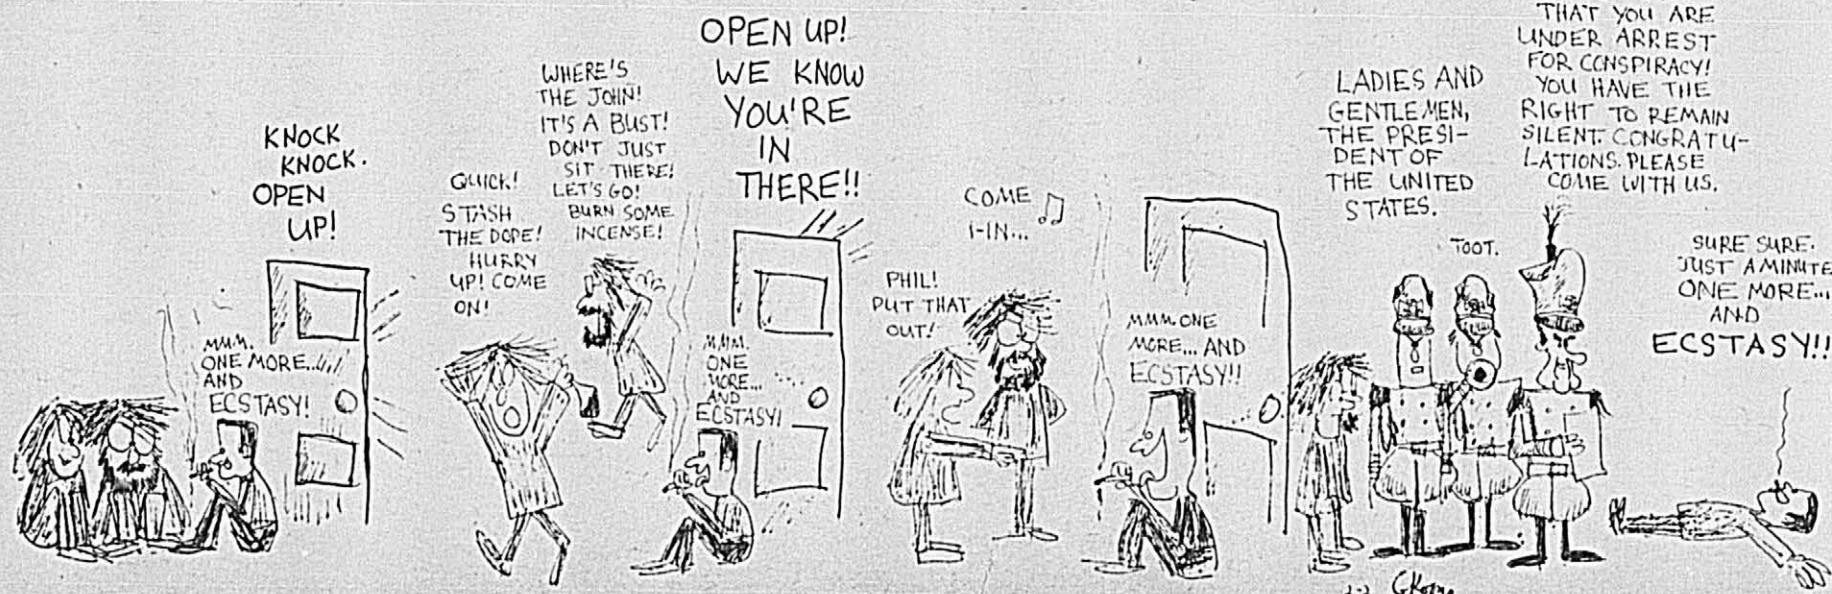 KNOCK
KNOCK.
OPEN
UP!
MMM.
ONE MORE...
AND
ECSTASY!
QUICK!
STASH
THE DOPE!
HURRY
UP! COME
ON!
WHERE'S
THE JOHN!
IT'S A BUST!
DON'T JUST
SIT THERE!
LET'S GO!
BURN SOME
INCENSE!
OPEN UP!
WE KNOW
YOU'RE
IN
THERE!!
MMM.
ONE
MORE...
AND
ECSTASY!
PHIL!
PUT THAT
OUT!
COME
I-IN...
MMM. ONE
MORE... AND
ECSTASY!!
LADIES AND
GENTLEMEN,
THE PRESI-
DENT OF
THE UNITED
STATES.
TOOT.
THAT YOU ARE
UNDER ARREST
FOR CONSPIRACY!
YOU HAVE THE
RIGHT TO REMAIN
SILENT. CONGRATU-
LATIONS. PLEASE
COME WITH US.
SURE SURE.
JUST A MINUTE
ONE MORE...
AND
ECSTASY!!